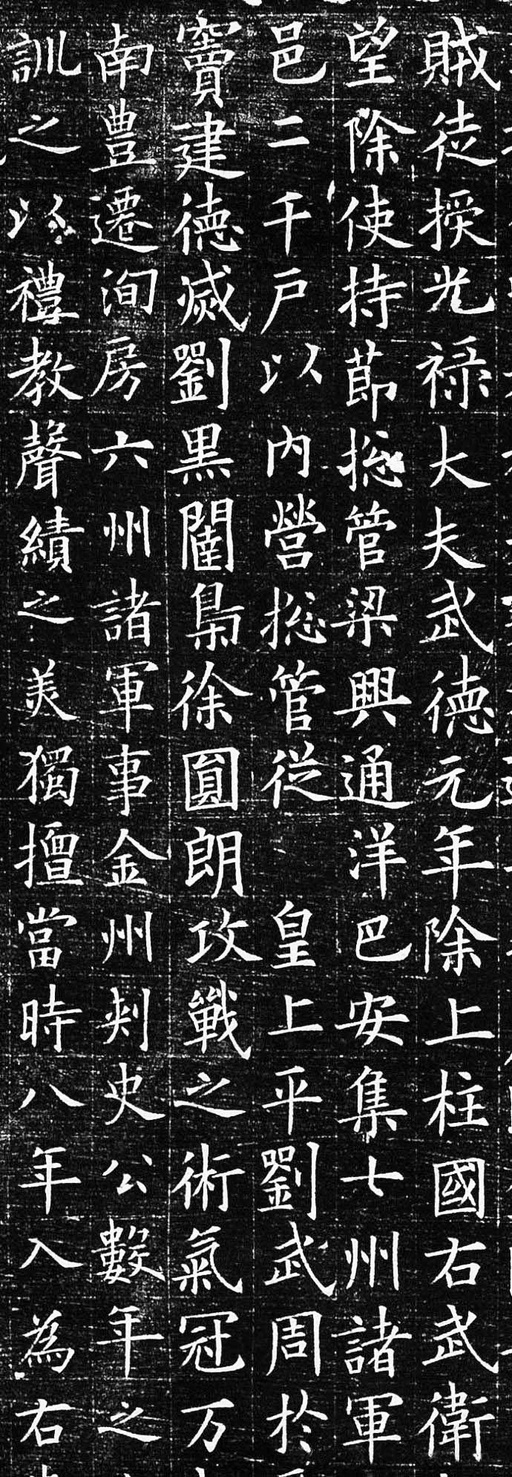 賊徒授光禄大夫武德元年除上柱國右武衛
望除使持節捴管梁興通洋巴安集七州諸軍
邑二千戶以內營捴管從皇上平劉武周於
竇建德滅劉黑闥梟徐圓朗攻戰之術氣冠万
南豊遷洵房六州諸軍事金州刾史公數年之
訓之以禮教聲績之美獨擅當時八年入為右